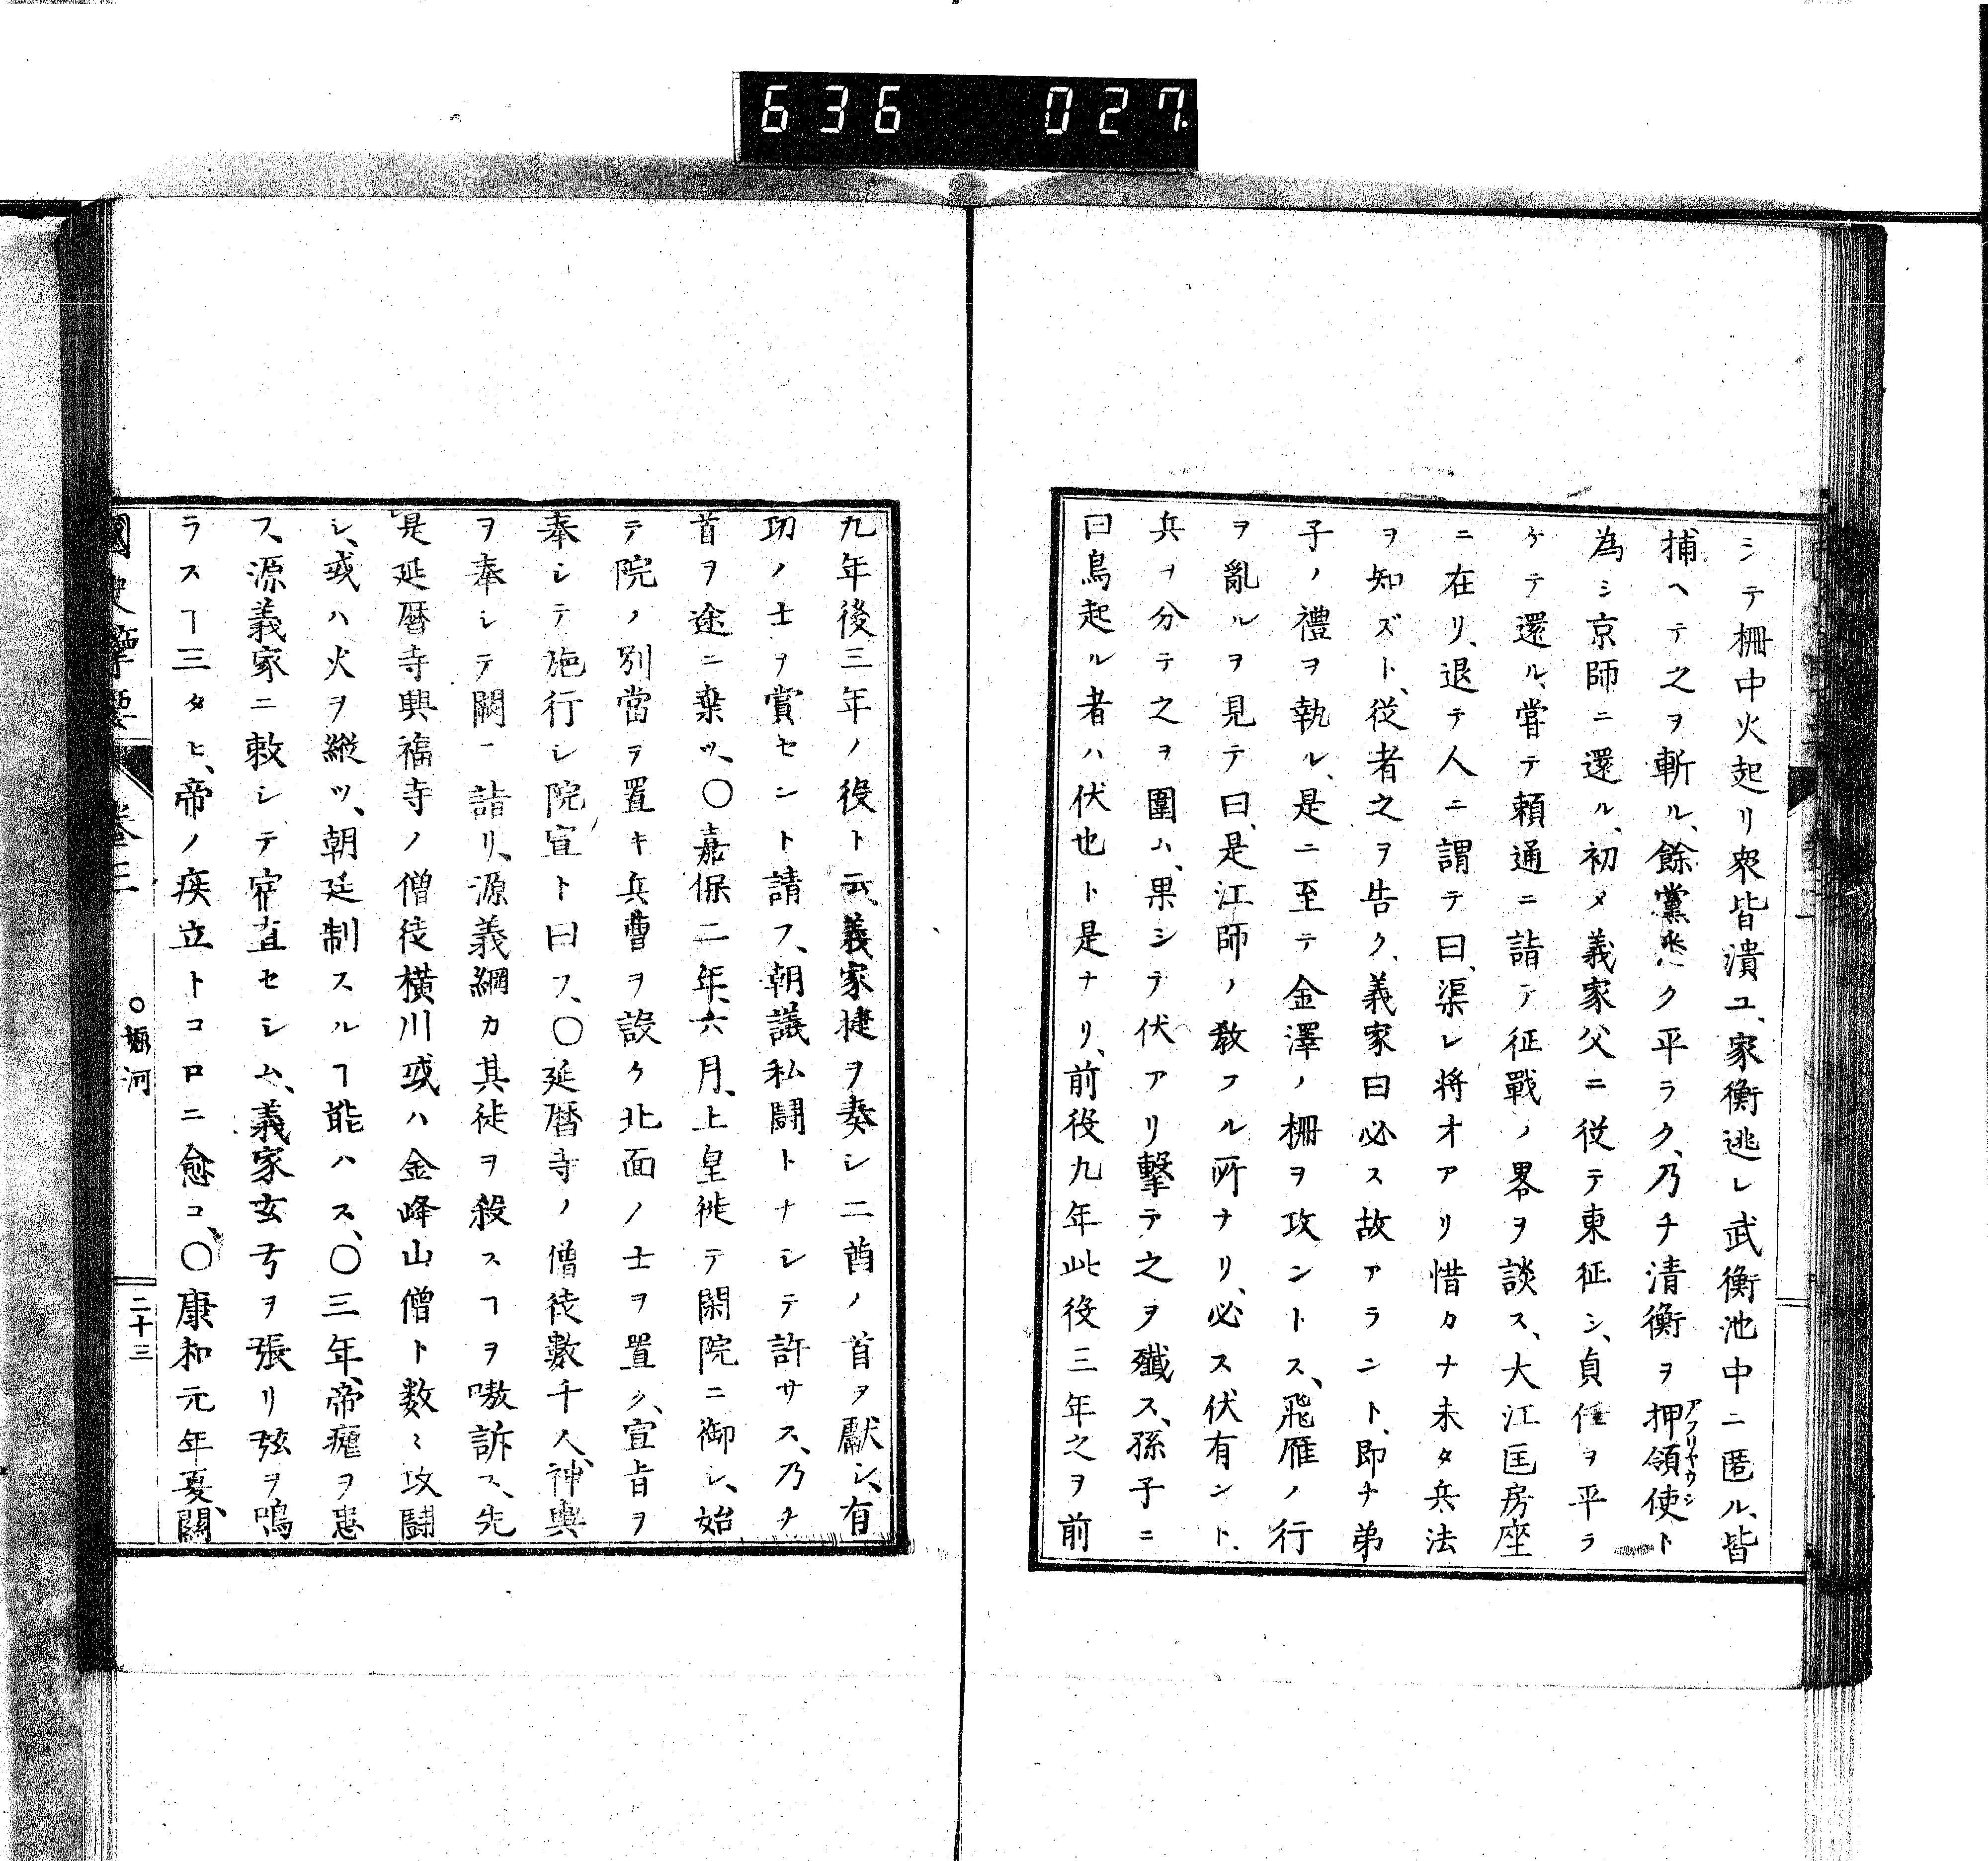 636 027
シテ柵中火起リ衆皆潰ユ、家衡逃レ武衡池中ニ匿ル、皆
捕ヘテ之ヲ斬ル、餘黨悉ク平ラク、乃チ清衡ヲ押領使ト
アフリヤウシ
為シ京師ニ還ル、初メ義家父ニ従テ東征シ、貞任ヲ平ラ
ケテ還ル、嘗テ頼通ニ詣テ征戰ノ畧ヲ談ス、大江匡房座
ニ在リ、退テ人ニ謂テ曰、渠レ将才アリ惜カナ未タ兵法
ヲ知ズト、従者之ヲ告ク、義家曰必ス故アラント、即チ弟
子ノ禮ヲ執ル、是ニ至テ金澤ノ柵ヲ攻ントス、飛雁ノ行
ヲ亂ルヲ見テ曰、是江師ノ教フル所ナリ、必ス伏有ント、
兵ヲ分テ之ヲ圍ム、果シテ伏アリ擊テ之ヲ殲ス、孫子ニ
曰鳥起ル者ハ伏也ト是ナリ、前役九年此役三年之ヲ前
九年後三年ノ役ト云、義家捷ヲ奏シ二酋ノ首ヲ獻シ、有
功ノ士ヲ賞セント請フ、朝議私闘トナシテ許サス、乃チ
首ヲ途ニ棄ツ、〇嘉保二年、六月、上皇徙テ閑院ニ御シ、始
テ院ノ別當ヲ置キ兵曹ヲ設ケ北面ノ士ヲ置ク、宣旨ヲ
奉シテ施行シ院宣ト曰フ、〇延暦寺ノ僧徒數千人、神輿
ヲ奉シテ闕ニ詣リ、源義綱カ其徒ヲ殺スヿヲ嗷訴ス、先
是延暦寺興福寺ノ僧徒横川或ハ金峰山僧ト数〻攻闘
シ、或ハ火ヲ縦ツ、朝廷制スルヿ能ハス、〇三年、帝瘧ヲ患
フ、源義家ニ敕シテ宿直セシム、義家玄弓ヲ張リ弦ヲ鳴
ラスヿ三タヒ、帝ノ疾立トコロニ愈コ、〇康和元年夏、關
國史擥要 卷三 〇堀河 二十三